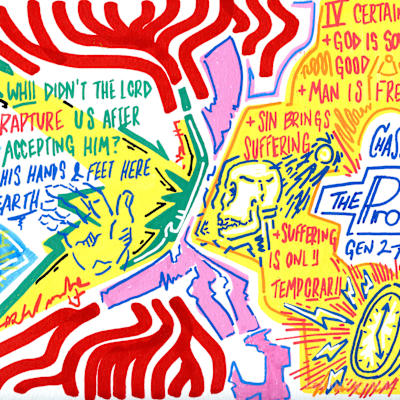 WHII DIDN'T THE LORD
RAPTURE US AFTER
ACCEPTING HIM?
HIS HANDS & FEET HERE
EARTH
IV CERTAIN
+ GOD IS SO
GOOD
+ MAN IS FRE
+ SIN BRINGS
SUFFERING
CHAS
THE Pro
GEN 2-
+ SUFFERING
IS ONLY
TEMPORARY